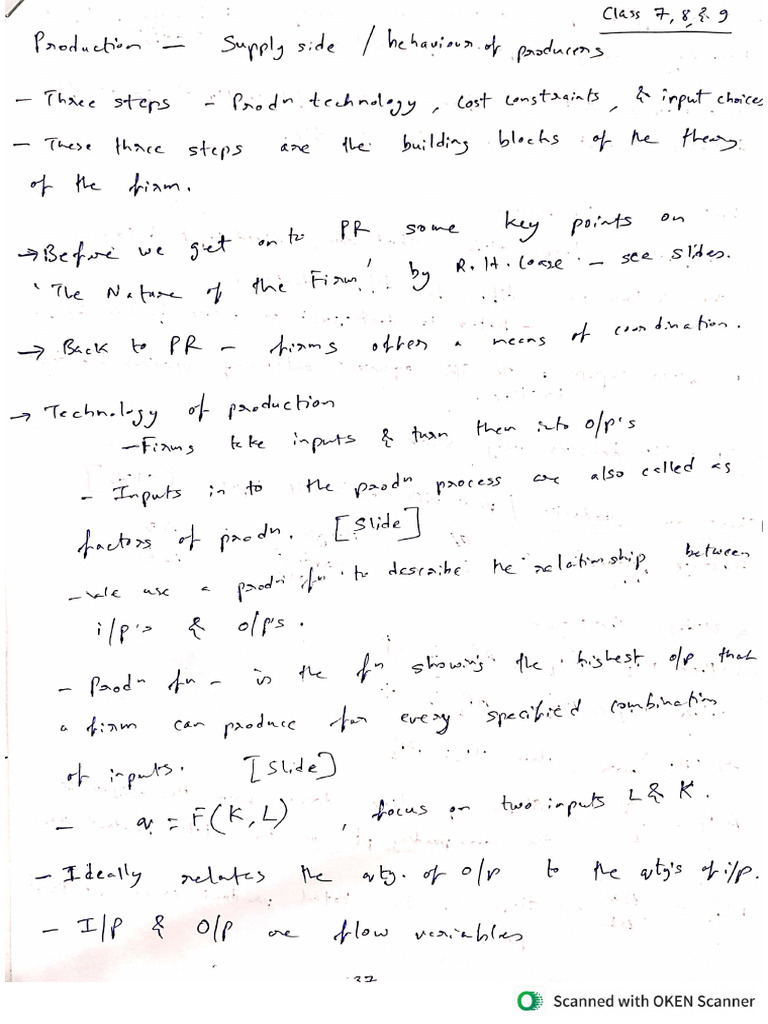 Class 7, 8 & 9
Production — Supply side / behaviour of producers
- Three steps - Prodn technology, cost constraints, & input choices
- These three steps are the building blocks of the theory
of the firm.
→ Before we get on to PR some key points on
'The Nature of the Firm' by R. H. Coase - see slides.
→ Back to PR - firms offer a means of coordination.
→ Technology of production
- Firms take inputs & turn them into O/P's
- Inputs in to the prodn process are also called as
factors of prodn. [Slide]
- We use a prodn fn to describe the relationship between
i/p's & o/p's.
- Prodn fn - is the fn showing the highest o/p that
a firm can produce for every specified combination
of inputs. [Slide]
- q = F(K, L), focus on two inputs L & K.
- Ideally relates the qty. of O/P to the qty's of i/p.
- I/P & O/P are flow variables
37
Scanned with OKEN Scanner